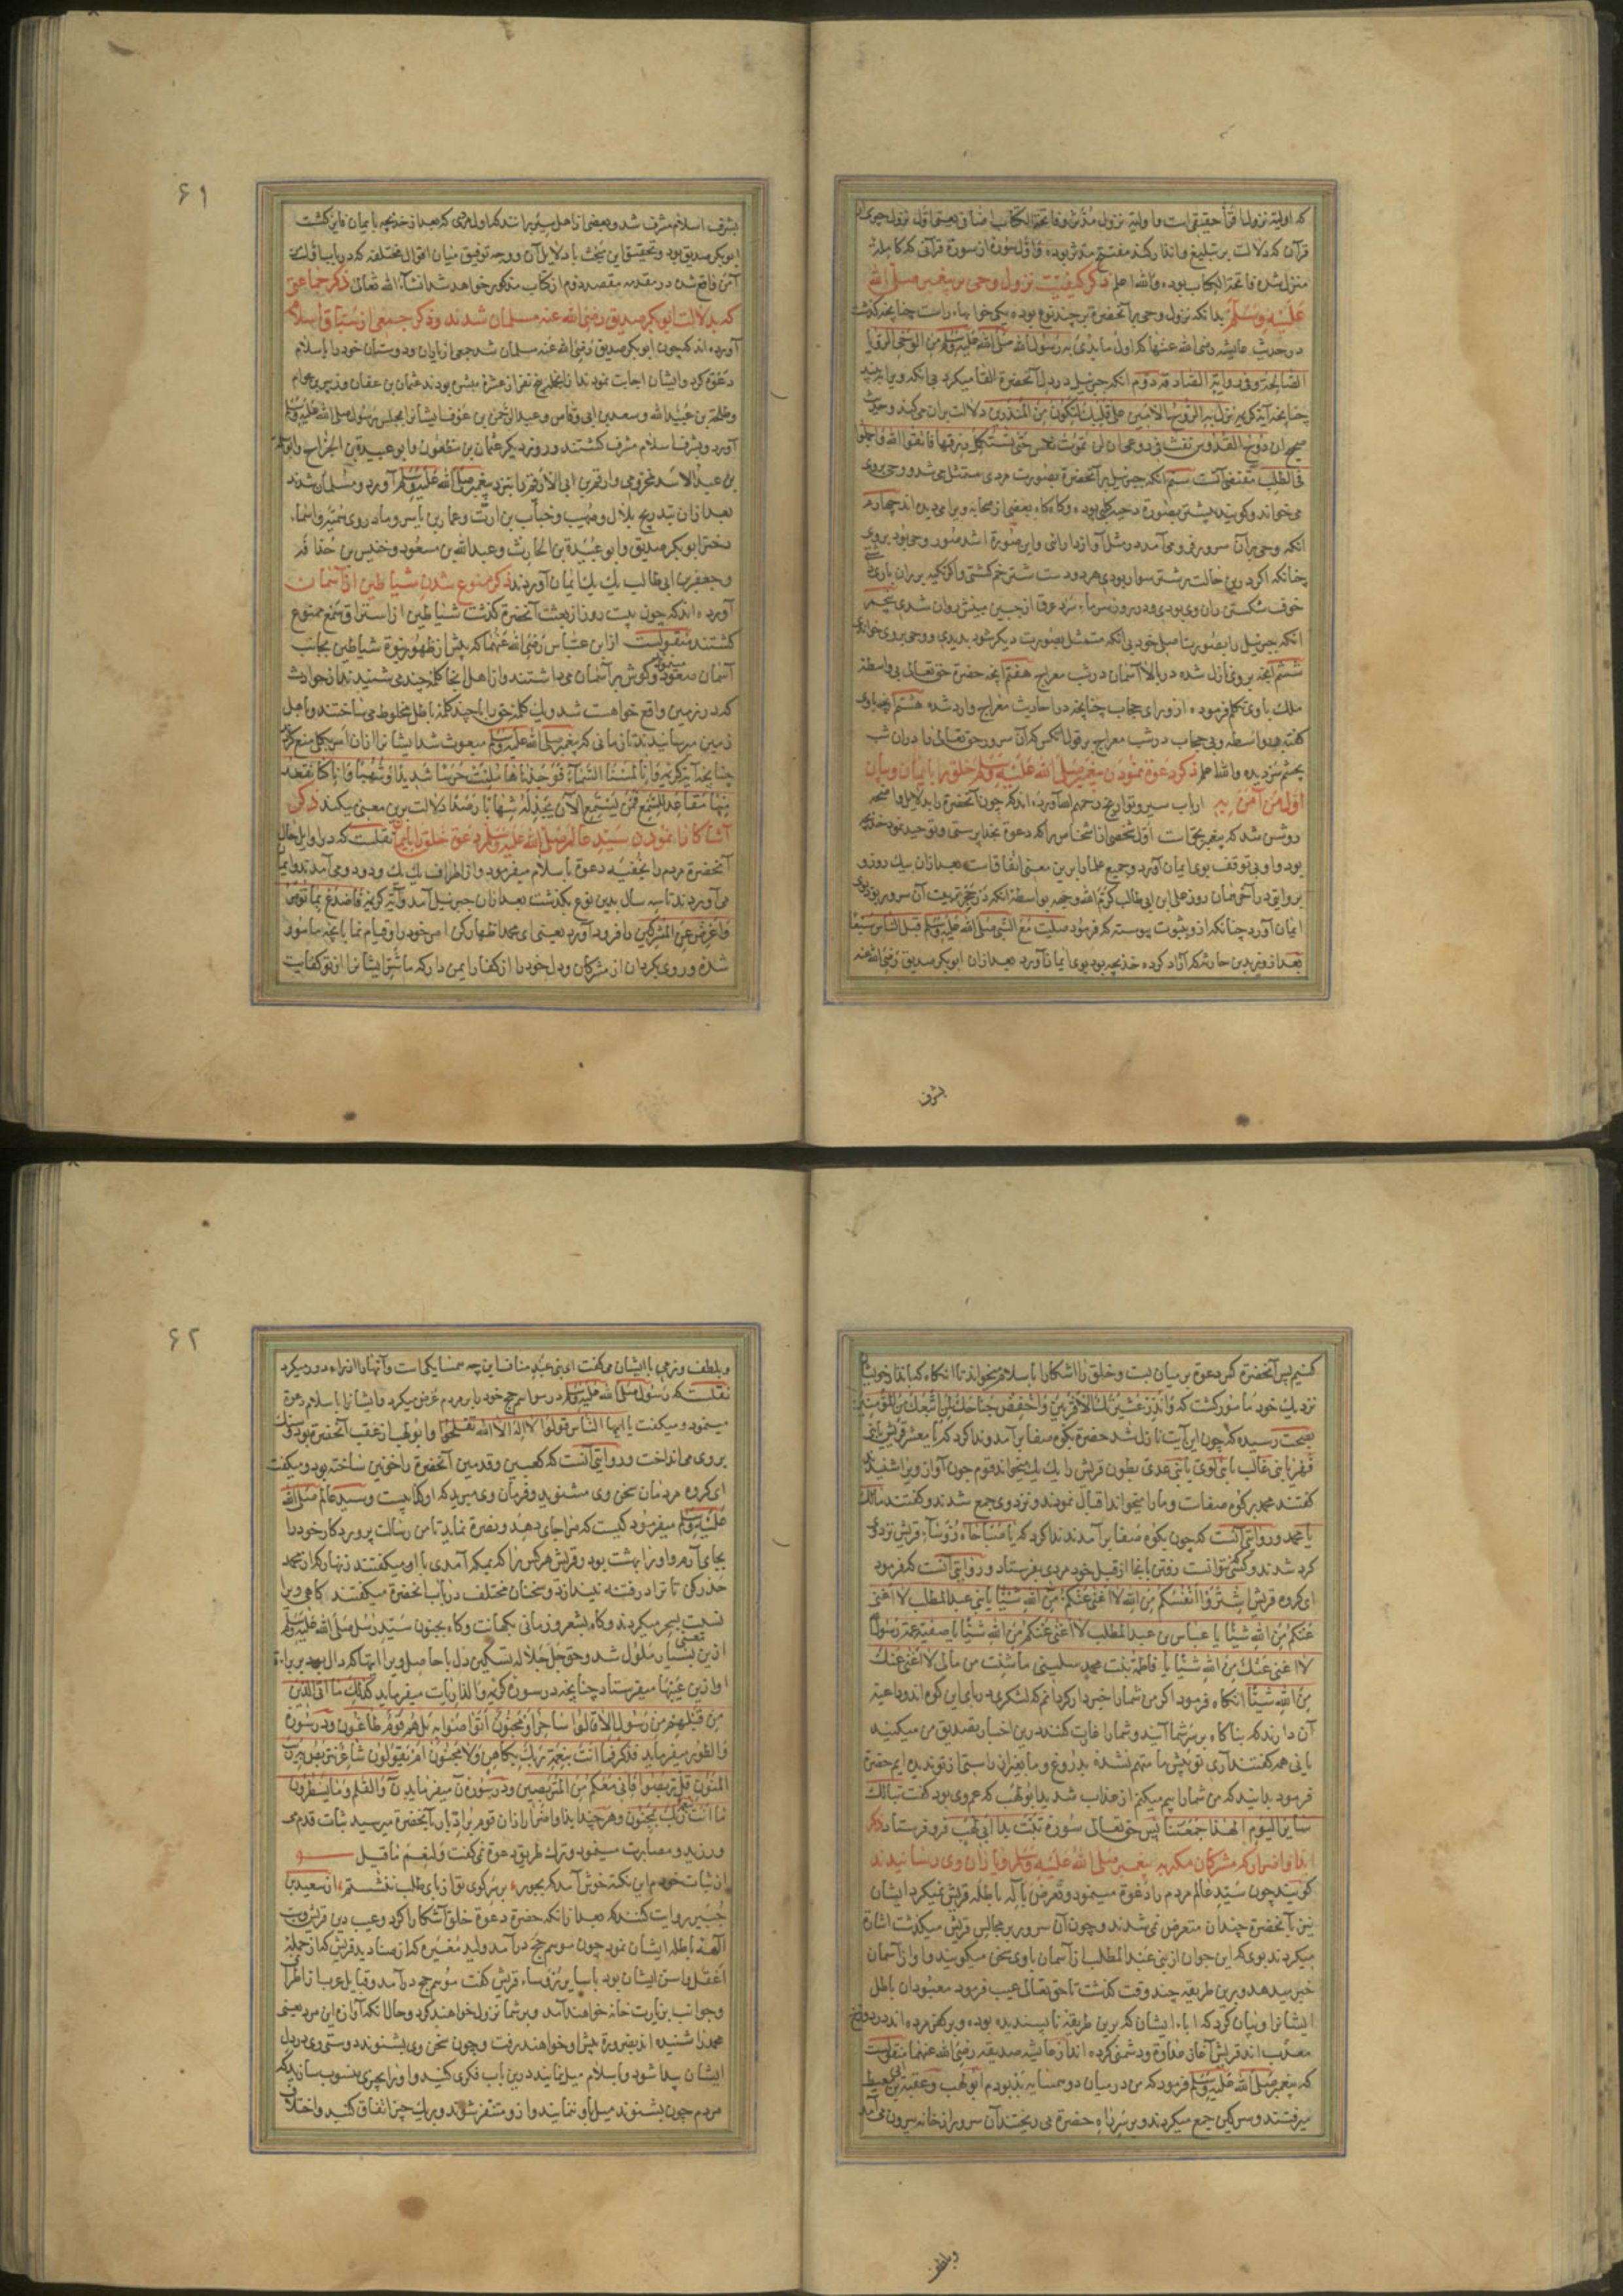 که اولیة نزول اقرأ حقیقی است و اولیة نزول مدثر و فاتحة الکتاب اضافی یعنی اول نزول جبرئیل
قرآن که دلالت بر تبلیغ و انذار کند مفتتح مدثر بوده و اول سوره از سورة قرآنی که کامله
منزل شده فاتحة الکتاب بوده والله اعلم ذکر کیفیت نزول وحی بر پیغمبر صلی الله
علیه وسلم بدانکه نزول وحی بر آنحضرة بر چند نوع بوده یکی خوابهاء راست چنانچه گذشت
در حدیث عایشه رضی الله عنها که اول ما بدئ به رسول الله صلی الله علیه وسلم من الوحی الرؤیا
الصالحة و فی روایة الصادقة دوم انکه جبرئیل در دل آنحضرة القا میکرد بی انکه ویرا بیند
چنانچه آیة کریمه نزل به الروح الامین علی قلبک لتکون من المنذرین دلالت بران میکند و حدیث
صحیح ان روح القدس نفث فی روعی ان لن تموت نفس حتی تستکمل رزقها فاتقوا الله واجملوا
فی الطلب مقتضی آنست سیم انکه جبرئیل بر آنحضرة بصورت مردی متمثل می شد و وحی بروی
می خواند و گویند بیشتر بصورة دحیه کلبی بوده و گاه گاه بعضی از صحابه ویرا می دیده اند چهارم
انکه وحی بر آن سرور فرو می آمد در مثل آواز دارائی و این صورة اشد صور وحی بود بروی
چنانکه اگر در ین حالت بر شتر سوار بودی هر دو دست شتر خم گشتی و اگر تکیه بر ران یاری
خوف شکستن ران وی بودی و در روز سرماء سرد عرق از جبین مبینش روان شدی پنجم
انکه جبرئیل را بصورت اصلی خود بی انکه متمثل بصورت دیگر شود بدیدی و وحی بروی خواندی
ششم انچه بروی نازل شده در بالاء آسمان در شب معراج هفتم انچه حضرة حق تعالی بی واسطه
ملک با وی تکلم فرموده از ورای حجاب چنانچه در احادیث معراج وارد شده هشتم انچه باوی
گفته بی واسطه و بی حجاب در شب معراج بر قول انکس که آن سرور حق تعالی را دران شب
بچشم سر دیده والله اعلم ذکر دعوة نمودن پیغمبر صلی الله علیه وسلم خلق را بایمان و بیان
اول من آمن به ارباب سیر و تواریخ رحمهم الله آورده اند که چون آنحضرة را بدلایل واضحه
روشن شد که پیغمبر بحق است اول شخصی از اشخاص را که دعوة بخدا پرستی و توحید نمود خدیجه
بود و او بی توقف بوی ایمان آورد و جمیع علما را برین معنی اتفاق است بعد ازان بیک روز و
بروایتی در آخر همان روز علی ابن ابی طالب کرم الله وجهه بواسطه انکه در حجر تربیت آن سرور بود بوی
ایمان آورد چنانکه ازو بثبوت پیوسته که فرمود صلیت مع النبی صلی الله علیه وسلم قبل الناس سبعا
بعد ازو زید بن حارثه که آزاد کرده خدیجه بود بوی ایمان آورد بعد ازان ابو بکر صدیق رضی الله عنه
بشرف
۶۱
بشرف اسلام مشرف شد و بعضی از اهل سیر برانند که اول مردی که بعد از خدیجه بایمان فایز گشت
ابو بکر صدیق بود و تحقیق این مبحث با دلایل آن و وجه توفیق میان اقوال مختلفه که در باب اول من
آمن واقع شده در مقدمه مقصد دوم از کتاب مذکور خواهد شد انشاء الله تعالی ذکر جماعتی
که بدلالت ابو بکر صدیق رضی الله عنه مسلمان شدند و ذکر جمعی از سباق اسلام
آورده اند که چون ابو بکر صدیق رضی الله عنه مسلمان شد جمعی از یاران و دوستان خود را باسلام
دعوة کرد و ایشان اجابت نمودند از انجمله پنج نفر از عشره مبشره بودند عثمان بن عفان و زبیر بن عوام
و طلحة بن عبید الله و سعد بن ابی وقاص و عبد الرحمن بن عوف ایشانرا بمجلس رسول صلی الله علیه وسلم
آورد و بشرف اسلام مشرف گشتند و روز دیگر عثمان بن مظعون و ابو عبیدة بن الجراح و ابو سلمة
بن عبد الاسد مخزومی و ارقم بن ابی الارقم را بنزد پیغمبر صلی الله علیه وسلم آورد و مسلمان شدند
بعد ازان بتدریج بلال و صهیب و خباب بن ارت و عمار بن یاسر و مادر وی سمیّه و اسماء
دختر ابو بکر صدیق و ابو عبیدة بن الحارث و عبد الله بن مسعود و خنیس بن حذافه
و جعفر بن ابی طالب یک یک ایمان آوردند ذکر ممنوع شدن شیاطین از آسمان
آورده اند که چون بیست روز از بعثت آنحضرة گذشت شیاطین از استراق سمع ممنوع
گشتند منقولست از ابن عباس رضی الله عنهما که پیش از ظهور نبوة شیاطین بجانب
آسمان صعود مینمودند و گوش بر آسمان می داشتند و از اهل انجا کلمه چند می شنیدند از حوادث
که در زمین واقع خواهست شد و یک کلمه حق را با چند کلمه باطل مخلوط می ساختند و باهل
زمین میرسانیدند تا زمانی که پیغمبر صلی الله علیه وسلم مبعوث شد ایشانرا ازان امر بکلی منع کردند
چنانچه آیة کریمه وانا لمسنا السماء فوجدناها ملئت حرسا شدیدا وشهبا وانا کنا نقعد
منها مقاعد للسمع فمن یستمع الآن یجد له شهابا رصدا دلالت برین معنی میکند ذکر
آشکارا نمودن سید عالم صلی الله علیه وسلم دعوة خلق را بایمان نقلست که در اوایل حال
آنحضرة مردم را بخفیه دعوة باسلام میفرمود و از اطراف یک یک و دو دو می آمدند و ایمان
می آوردند تا سه سال بدین نوع بگذشت بعد ازان جبرئیل آمد و آیة کریمه فاصدع بما تؤمر
واعرض عن المشرکین را فرود آورد یعنی ای محمد اظهار کن امر خود را و قیام نمای بانچه مامور
شده و روی بگردان از مشرکان و دل خود را از کفار ایمن دار که ما شر ایشانرا از تو کفایت
کنیم پس آنحضرة کمر دعوة بر میان بست و خلق را آشکارا باسلام میخواند تا انگاه که بانذار خویشان
نزدیک خود مامور گشت که وانذر عشیرتک الاقربین واخفض جناحک لمن اتبعک من المؤمنین
بصحت رسیده که چون این آیت نازل شد حضرة بکوه صفا بر آمد و ندا کرد که یا معشر قریش یا بنی
فهر یا بنی غالب یا بنی لوی یا بنی عدی بطون قریش را یک یک میخواند قوم چون آواز ویرا شنیدند
گفتند محمد بر کوه صفاست و ما را میخواند اقبال نمودند و نزد وی جمع شدند و گفتند مالک
یا محمد و روایتی آنست که چون بکوه صفا بر آمد ندا کرد که یا صباحاه رؤساء قریش نزد وی
گرد شدند و کسی که نتوانست رفتن بانجا از قبل خود مردی بفرستاد و روایتی آنست که فرمود
ای گروه قریش اشتروا انفسکم من الله لا اغنی عنکم من الله شیئا یا بنی عبد المطلب لا اغنی
عنکم من الله شیئا یا عباس بن عبد المطلب لا اغنی عنکم من الله شیئا یا صفیة عمة رسول الله
لا اغنی عنک من الله شیئا یا فاطمة بنت محمد سلینی ما شئت من مالی لا اغنی عنک
من الله شیئا انگاه فرمود اگر من شما را خبردار گردانم که لشکری در پای این کوه اند و داعیه
آن دارند که بناگاه بر سر شما آیند و شما را غارت کنند درین اخبار تصدیق من میکنید
یا نی همه گفتند آری تو پیش ما متهم نشدۀ بدروغ و ما بغیر از راستی از تو ندیده ایم حضرة
فرمود بدانید که من شما را بیم میکنم از عذاب شدید ابو لهب که عم وی بود گفت تبا لک
سایر الیوم الهذا جمعتنا پس حق تعالی سورة تبت یدا ابی لهب فرو فرستاد ذکر
ایذا و اضرار که مشرکان مکه به پیغمبر صلی الله علیه وسلم و یاران وی رسانیدند
گویند چون سید عالم مردم را دعوة مینمود و تعرض بآلهه باطله قریش نمیکرد ایشان
نیز بآنحضرة چندان متعرض نمی شدند و چون آن سرور بر مجالس قریش میگذشت اشارة
میکردند بوی که این جوان از بنی عبد المطلب از آسمان با وی سخن میگویند و او از آسمان
خبر میدهد و برین طریقه چند وقت گذشت تا حق تعالی عیب فرمود معبودان باطل
ایشانرا و بیان کرد که آباء ایشان که برین طریقه ناپسندیده بوده و بر کفر مرده اند در دوزخ
معذب اند قریش آغاز عداوة و دشمنی کرده اند از عایشه صدیقه رضی الله عنها منقولست
که پیغمبر صلی الله علیه وسلم فرمود که من در میان دو همسایه بد بودم ابو لهب و عقبة بن ابی معیط
میرفتند و سرگین جمع میکردند و بر سر راه حضرة می ریختند آن سرور از خانه بیرون می آمد
وبلطف
۶۲
وبلطف و نرمی با ایشان می گفت ای بنی عبد مناف این چه همسایگی است و آنها را از راه دور میکرد
نقلست که رسول صلی الله علیه وسلم در مواسم حج خود را بر مردم عرض میکرد و ایشانرا باسلام دعوة
مینمود و میگفت یا ایها الناس قولوا لا اله الا الله تفلحوا و ابو لهب از عقب آنحضرة بود و سنگ
بروی می انداخت و روایتی آنست که کعبین و قدمین آنحضرة را خونین ساخته بود و میگفت
ای گروه مردمان سخن وی مشنوید و فرمان وی مبرید که او کذابیست و سید عالم صلی الله
علیه وسلم میفرمود کیست که مرا جای دهد و نصرة نماید تا من رسالت پروردگار خود را
بجای آرم و او را بهشت بود و قریش هر کس را که بمکه آمدی با او میگفتند زنهار که از محمد
حذر کن تا ترا در فتنه نیندازد و سخنان مختلف در باب آنحضرة میگفتند گاهی ویرا
نسبت بسحر میکردند و گاه بشعر و زمانی بکهانت و گاه بجنون سید رسل صلی الله علیه وسلم
ازین معنی بسیار ملول شد و حق جل جلاله بتسکین دل با حاصل ویرا ایتها که دال بود بر براءة
او ازین عیبها میفرستاد چنانچه در سورة کریمه والذاریات میفرماید کذلک ما اتی الذین
من قبلهم من رسول الا قالوا ساحر او مجنون أتواصوا به بل هم قوم طاغون و در سورة
والطور میفرماید فذکر فما انت بنعمة ربک بکاهن ولا مجنون ام یقولون شاعر نتربص به ریب
المنون قل تربصوا فانی معکم من المتربصین و در سورة ن میفرماید ن والقلم وما یسطرون
ما انت بنعمة ربک بمجنون و هر چند ایذا و اضرار ازان قوم بد کردار بآنحضرة میرسید ثبات قدم می
ورزید و مصابرت مینمود و ترک طریق دعوة نمی گفت ولنعم ما قیل
از ثبات خودم این نکته خوش آمد که بجور بر سر کوی تو از پای طلب ننشستم از سعید بن
جبیر روایت کنند که بعد ازانکه حضرة دعوة خلق آشکارا کرد و عیب دین قریش و سب
آلهه باطله ایشان نمود چون موسم حج در آمد ولید مغیره که از صنادید قریش که از جمله
اعقل و اسن ایشان بود با سایر رؤساء قریش گفت موسم حج در آمد و قبایل عرب از اطراف
و جوانب بزیارت خانه خواهند آمد و بر شما نزول خواهند کرد و حالا انکه آوازه این مرد یعنی
محمد را شنیده اند بضرورة پیش او خواهند رفت و چون سخن وی بشنوند دوستی وی در دل
ایشان پیدا شود و باسلام میل نمایند درین باب فکری کنید و او را بچیزی منسوب سازید که
مردم چون بشنوند میل باو ننمایند و ازو متنفر شوند و بر یک چیز اتفاق کنید و اختلاف